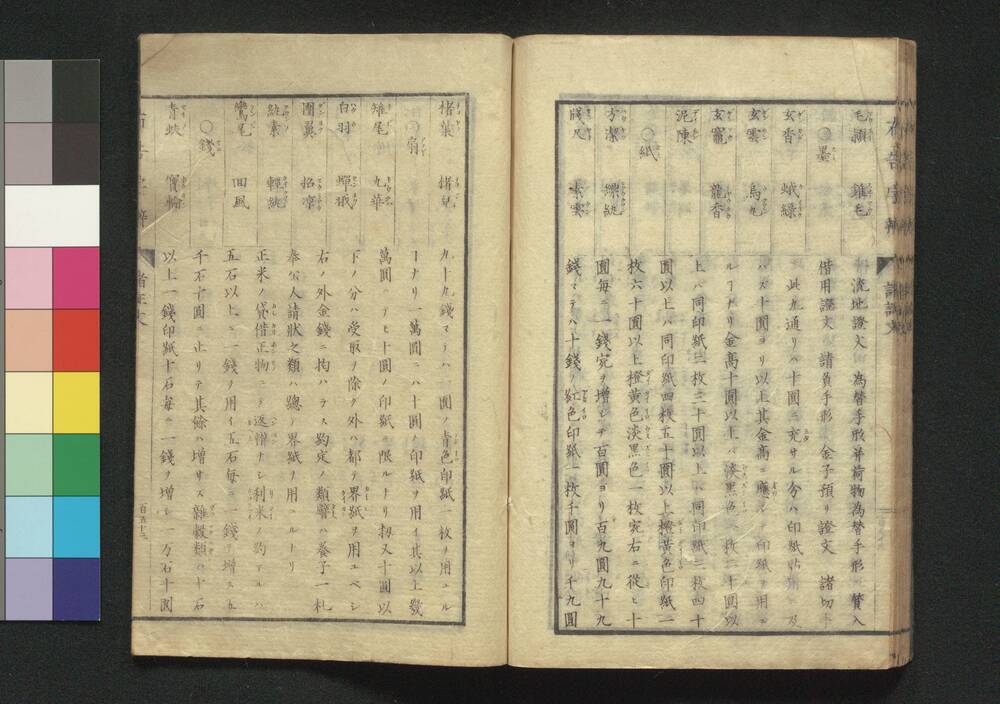 毛頴 雞毛
○墨
玄香 蛾緑
玄雲 烏丸
玄寵 龍香
泥陳
○紙
方潔 縹紈
牋尺 素雲
流地證文 為替手形并荷物為替手形 質入
借用證文 請負手形 金子預リ證文 諸切手
此九通リハ十圓ニ充サル分ハ印紙貼用ニ及
ハス十圓ヨリ以上其金髙ニ應シテ印紙ヲ用ユ
ルコトナリ金髙十圓以上ハ淡黒色一枚二十圓以
上ハ同印紙二枚三十圓以上ハ同印紙三枚四十
圓以上ハ同印紙四枚五十圓以上橙黄色印紙一
枚六十圓以上橙黄色淡黒色一枚宛右ニ從ヒ十
圓毎ニ一錢宛ヲ増シテ百圓ヨリ百九圓九十九
錢マテハ十錢ノ紅色印紙一枚千圓ヨリ千九圓
楮葉 楮兒
○扇
雉尾 九華
白羽 蟬翼
團翼 招凉
紈素 輕紈
鸞尾 回風
○錢
青蚨 寳輪
九十九錢マテハ一圓ノ青色印紙一枚ヲ用ユル
コトナリ一萬圓ニハ十圓ノ印紙ヲ用イ其以上數
萬圓ニテモ十圓ノ印紙ニ限ルコトナリ扨又十圓以
下ノ分ハ受取ヲ除ク外ハ都テ界紙ヲ用ユベシ
右ノ外金錢ニ拘ハラス約定ノ類譬ハ養子一札
奉公人請状之類ハ總テ界紙ヲ用ユルコトナリ
正米ノ貸借正物ニテ返濟ナシ利米ノ約アルハ
五石以上ニ一錢ヲ用イ五石毎ニ一錢ヲ増ス五
千石十圓ニ止リテ其餘ハ増サス雜穀類ハ十石
以上一錢印紙十石毎ニ一錢ヲ増シ一万石十圓
百五十二